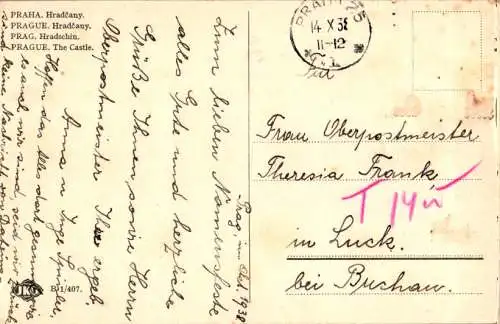 PRAHA. Hradčany.
PRAGUE. Hradčany.
PRAG. Hradschin.
PRAGUE. The Castle.
PRAHA 25
14 X 38
11-12
Frau Oberpostmeister
Theresia Frank
T 14
in Luck
bei Buchau.
Prag, im Okt. 1938.
Zum lieben Namensfeste
alles Gute und herzliche
Grüße Ihnen sowie Herrn
Oberpostmeister Ihre ergeb.
Anna u Inge Spindler.
Hoffen das alles dort gesund
wir sind
und keine Nachricht von
B 1/407.